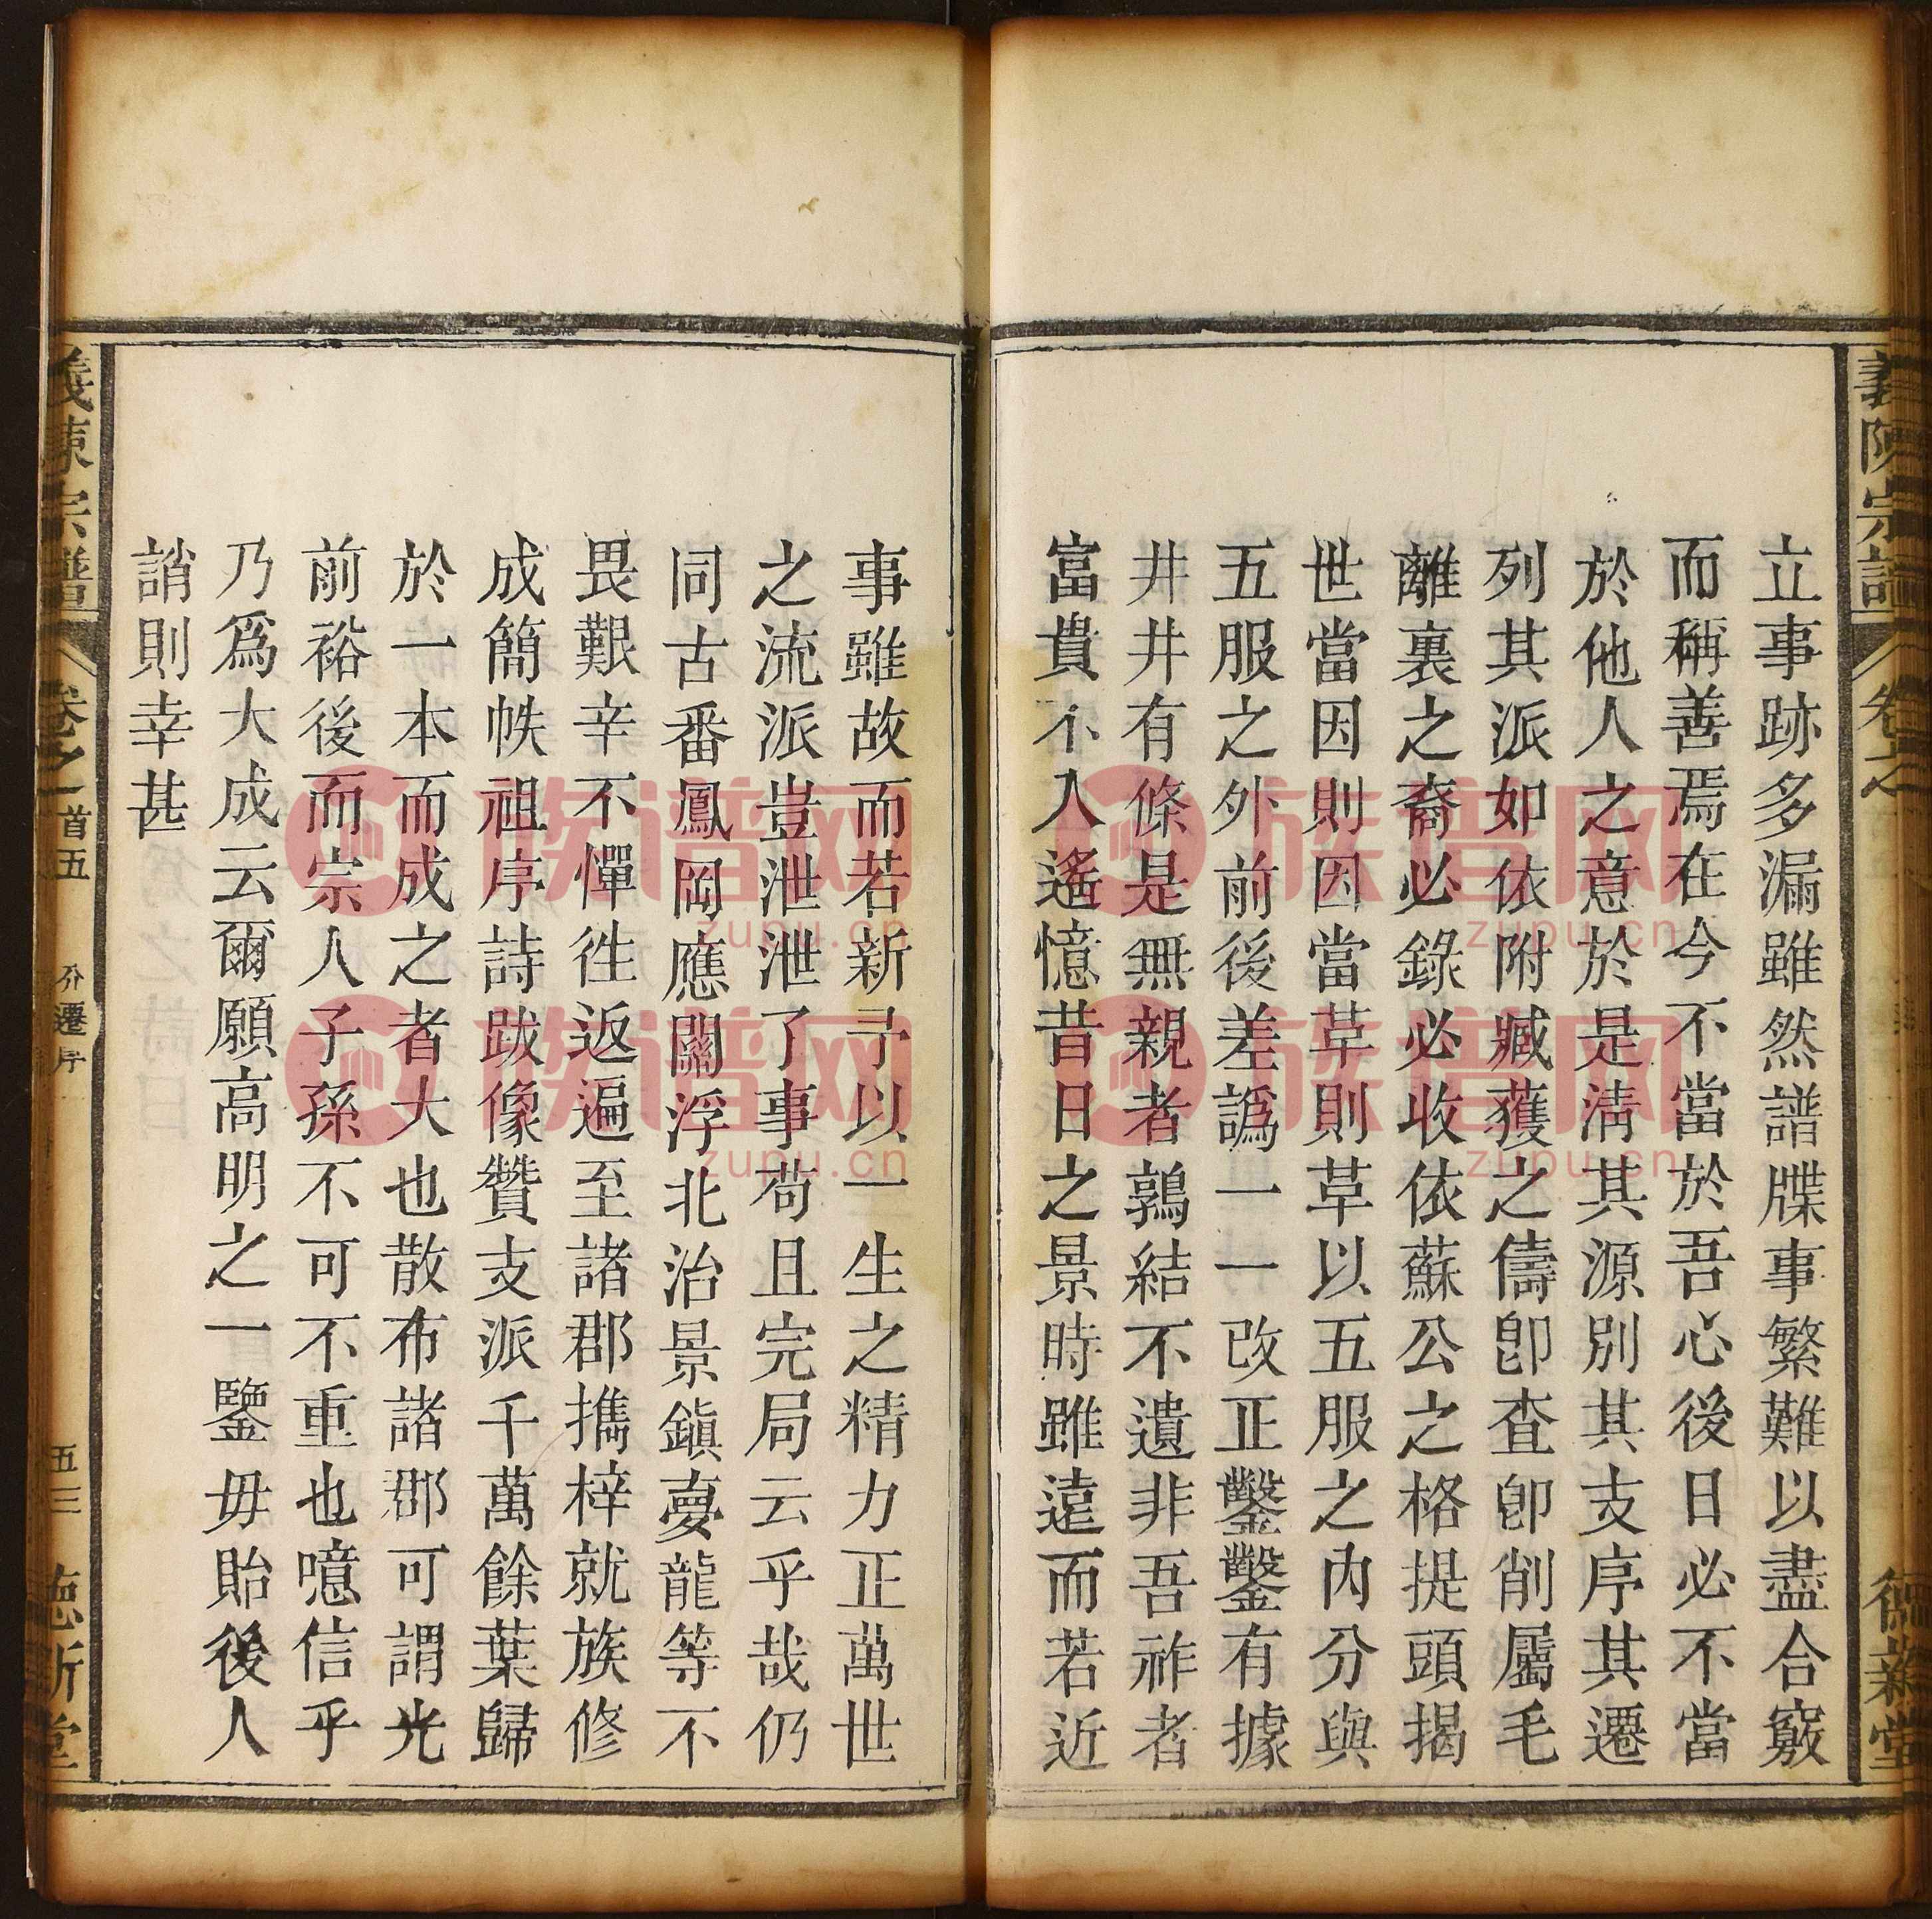 義陳宗譜
卷之
德新堂
立事跡多漏雖然譜牒事繁難以盡合竅
而稱善焉在今不當於吾心後日必不當
於他人之意於是淸其源別其支序其遷
列其派如依附臧獲之儔卽查卽削屬毛
離裏之裔必錄必收依蘇公之格提頭揭
世當因則因當草則草以五服之內分與
五服之外前後差譌一一改正鑿鑿有據
井井有條是無親者鶉結不遺非吾祚者
富貴不入遙憶昔日之景時雖遠而若近
事雖故而若新予以一生之精力正萬世
之流派豈泄泄了事苟且完局云乎哉仍
同古番鳳岡應關浮北治景鎭夔龍等不
畏艱辛不憚徃返遍至諸郡擕梓就族修
成簡帙祖序詩跋像贊支派千萬餘葉歸
於一本而成之者大也散布諸郡可謂光
前裕後而宗人子孫不可不重也噫信乎
乃爲大成云爾願高明之一鑒毋貽後人
誚則幸甚
義陳宗譜
卷之一
首五
分遷序
五三
德新堂
族谱网
zupu.cn
族谱网
zupu.cn
族谱网
zupu.cn
族谱网
zupu.cn